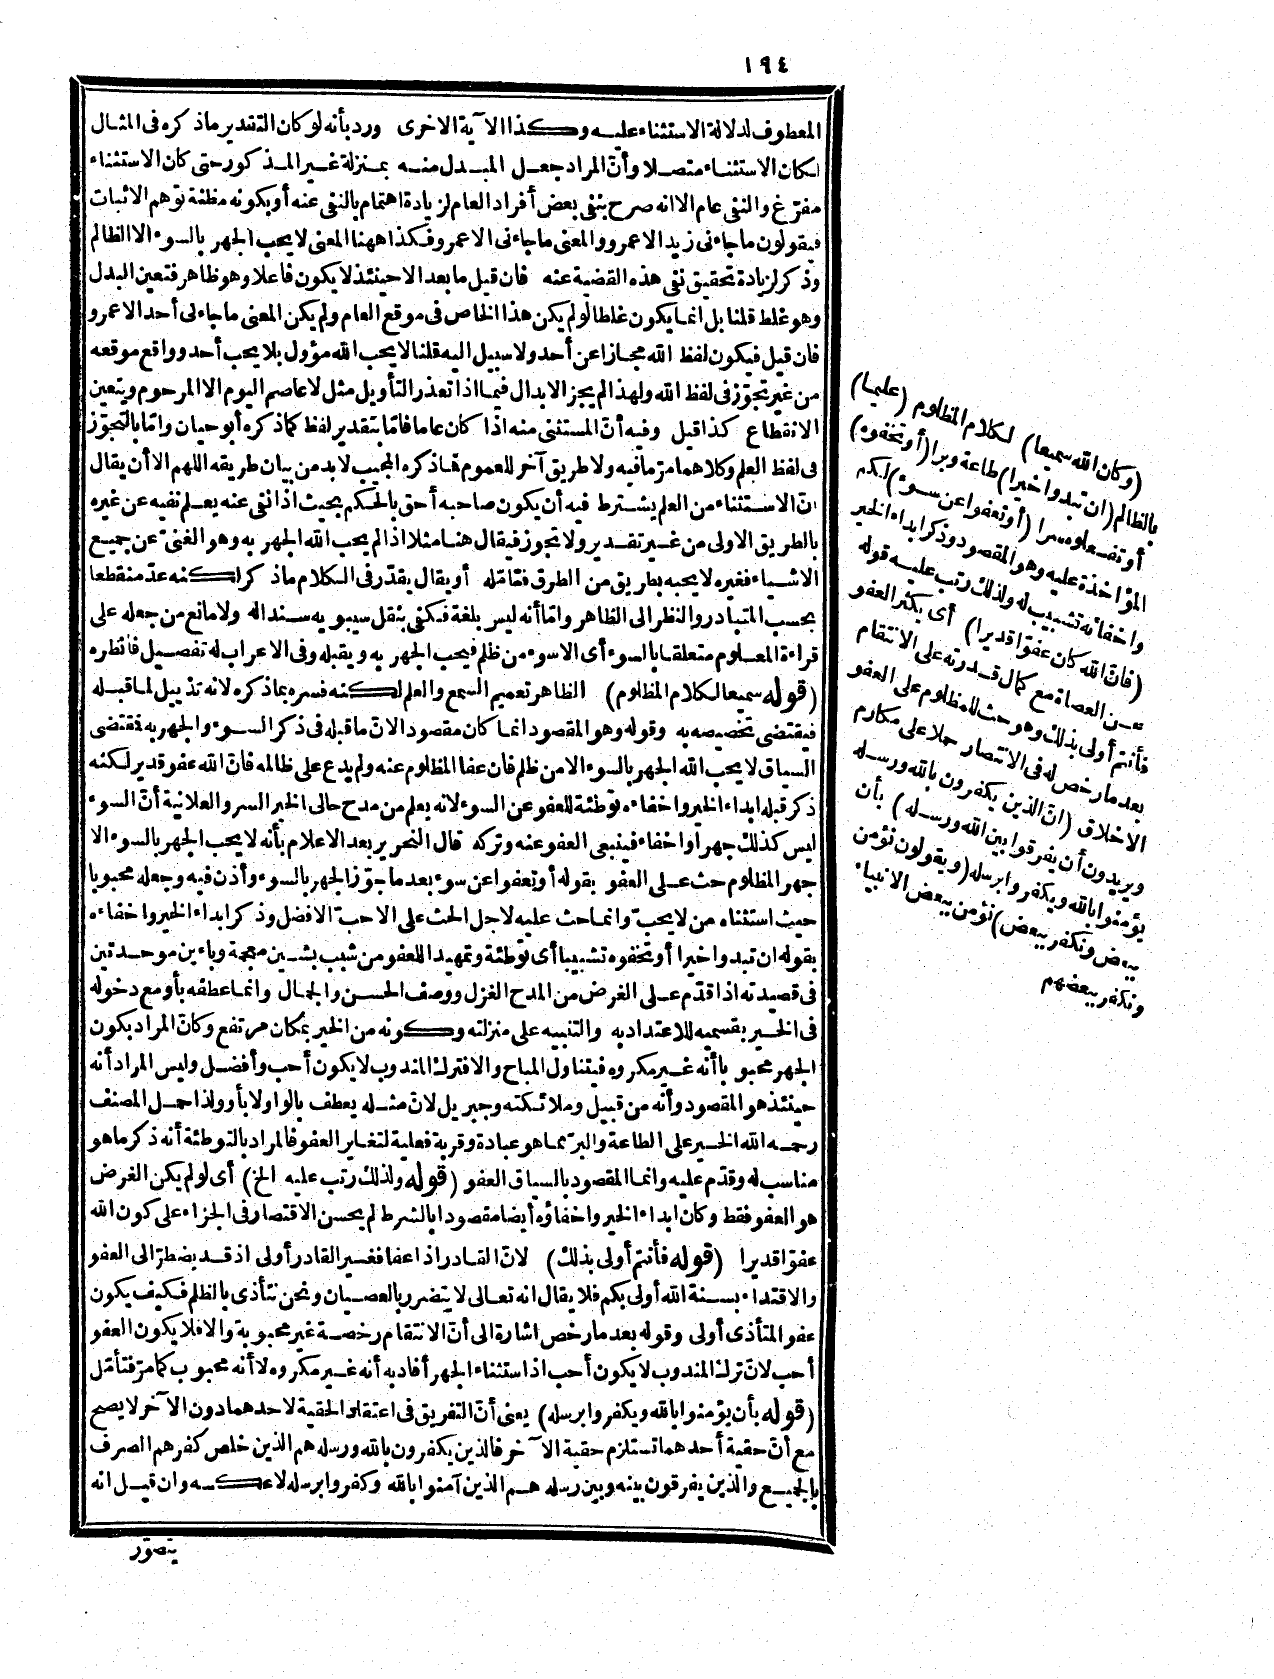 ١٩٤
المعطوف لدلالة الاستثناء عليه وكذا الآية الاخرى ورد بأنه لو كان التقدير ماذكره فى المثال
لكان الاستثناء متصلا وأنّ المراد جعل المبدل منه بمنزلة غير المذكور حتى كان الاستثناء
مفرّغ والنفى عام الا انه صرح بنفى بعض أفراد العام لزيادة اهتمام بالنفى عنه أو بكونه مظنة توّهم الاثبات
فيقولون ماجاءنى زيد الاعمرو والمعنى ماجاءنى الاعمرو فكذا ههنا المعنى لا يحب الجهر بالسوء الا الظالم
وذكر لزيادة تحقيق نفى هذه القضية عنه فان قيل ما بعد الا حينئذ لا يكون فاعلا وهو ظاهر فتعين البدل
وهو غلط قلنا بل انما يكون غلطا لو لم يكن هذا الخاص فى موقع العام ولم يكن المعنى ماجاءنى أحد الاعمرو
فان قيل فيكون لفظ الله مجازا عن أحد ولا سبيل اليه قلنا لا يحب الله مؤول بلا يحب أحد وواقع موقعه
من غير تجوّز فى لفظ الله ولهذا لم يجز الابدال فيما اذا تعذر التأويل مثل لا عاصم اليوم الا المرحوم ويتعين
الانقطاع كذا قيل وفيه أنّ المستثنى منه اذا كان عاما فامّا بتقدير لفظ كما ذكره أبو حيان وامّا بالتجوّز
فى لفظ العلم وكلاهما مرّ مافيه ولا طريق آخر للعموم فماذكره المجيب لابد من بيان طريقه اللهم الا أن يقال
انّ الاستثناء من العلم يشترط فيه أن يكون صاحبه أحق بالحكم بحيث اذا نفى عنه يعلم نفيه عن غيره
بالطريق الاولى من غير تقدير ولا تجوز فيقال هنا مثلا اذا لم يحب الله الجهر به وهو الغنىّ عن جميع
الاشياء فغيره لا يحبه بطريق من الطرق فتأمّله أو يقال يقدّر فى الكلام ماذكر لكنه عدّ منقطعا
بحسب المتبادر والنظر الى الظاهر وامّا أنه ليس بلغة فيكفى بنقل سيبويه سندا له ولا مانع من جعله على
قراءة المعلوم متعلقا بالسوء أى الا سوء من ظلم فيحب الجهر به ويقبله وفى الاعراب له تفصيل فانظره
(قوله سميعا لكلام المظلوم) الظاهر تعميم السمع والعلم لكنه فسره بماذكره لانه تذييل لما قبله
فيقتضى تخصيصه به وقوله وهو المقصود انما كان مقصودا لانّ ما قبله فى ذكر السوء والجهر به فمقتضى
السياق لا يحب الله الجهر بالسوء الا من ظلم فان عفا المظلوم عنه ولم يدع على ظالمه فانّ الله عفو قدير لكنه
ذكر قبله ابداء الخير واخفاءه توطئة للعفو عن السوء لانه يعلم من مدح حالى الخير السر والعلانية أنّ السوء
ليس كذلك جهرا واخفاء فينبغى العفو عنه وتركه قال النحرير بعد الاعلام بأنه لا يحب الجهر بالسوء الا
جهر المظلوم حث على العفو بقوله أو تعفوا عن سوء بعد ماجوّز الجهر بالسوء وأذن فيه وجعله محبوبا
حيث استثناه من لا يحبّ وانما حث عليه لاجل الحث على الاحبّ الافضل وذكر ابداء الخير واخفاءه
بقوله ان تبدوا خيرا أو تخفوه تشبيبا أى توطئة وتمهيدا للعفو من شبب بشين معجمة وباءين موحدتين
فى قصيدته اذا قدّم على الغرض من المدح الغزل ووصف الحسن والجمال وانما عطفه بأو مع دخوله
فى الخير بقسميه للاعتداد به والتنبيه على منزلته وكونه من الخير بمكان مرتفع وكانّ المراد بكون
الجهر محبوبا أنه غير مكروه فيتناول المباح والا فترك المندوب لا يكون أحب وأفضل وليس المراد أنه
حينئذ هو المقصود وأنه من قبيل وملائكته وجبريل لانّ مثله يعطف بالواو لا بأو ولذا حمل المصنف
رحمه الله الخير على الطاعة والبرّ مما هو عبادة وقربة فعلية لتغاير العفو فالمراد بالتوطئة أنه ذكر ماهو
مناسب له وقدّم عليه وانما المقصود بالسياق العفو (قوله ولذلك رتب عليه الخ) أى لو لم يكن الغرض
هو العفو فقط وكان ابداء الخير واخفاؤه أيضا مقصودا بالشرط لم يحسن الاقتصار فى الجزاء على كون الله
عفوّا قديرا (قوله فأنتم أولى بذلك) لانّ القادر اذا عفا فغير القادر أولى اذ قد يضطرّ الى العفو
والاقتداء بسنة الله أولى بكم فلا يقال انه تعالى لا يتضرر بالعصيان ونحن نتأذى بالظلم فكيف يكون
عفو المتأذى أولى وقوله بعد مارخص اشارة الى أنّ الانتقام رخصة غير محبوبة والا فلا يكون العفو
أحب لانّ ترك المندوب لا يكون أحب اذ استثناء الجهر أفاد به أنه غير مكروه لا أنه محبوب كما مرّ فتأمّل
(قوله بأن يؤمنوا بالله ويكفروا برسله) يعنى أنّ التفريق فى اعتقاد الحقية لاحدهما دون الآخر لا يصح
مع أنّ حقية أحدهما تستلزم حقية الآخر فالذين يكفرون بالله ورسله هم الذين خلص كفرهم الصرف
بالجميع والذين يفرقون بينه وبين رسله هم الذين آمنوا بالله وكفروا برسله لا عكسه وان قيل انه
يتصوّر
(وكان الله سميعا) لكلام المظلوم (عليما)
بالظالم (ان تبدوا خيرا) طاعة وبرا (أو تخفوه)
أو تفعلوه سرا (أو تعفوا عن سوء) لكم
المؤاخذة عليه وهو المقصود وذكر ابداء الخير
واخفائه تشبيب له ولذلك رتب عليه قوله
(فانّ الله كان عفوّا قديرا) أى يكثر العفو
عن العصاة مع كمال قدرته على الانتقام
فأنتم أولى بذلك وهو حث للمظلوم على العفو
بعد مارخص له فى الانتصار حملا على مكارم
الاخلاق (انّ الذين يكفرون بالله ورسله
ويريدون أن يفرقوا بين الله ورسله) بأن
يؤمنوا بالله ويكفروا برسله (ويقولون نؤمن
ببعض ونكفر ببعض) نؤمن ببعض الانبياء
ونكفر ببعضهم